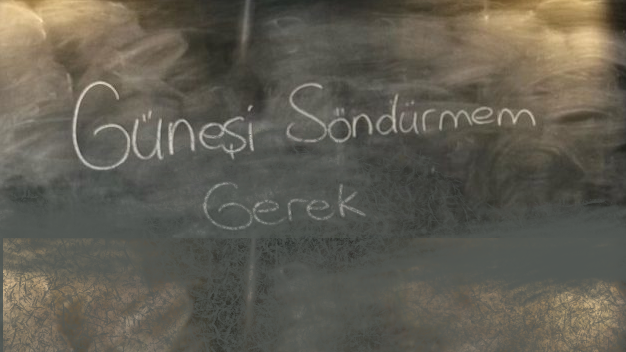 Güneşi Söndürmem
Gerek